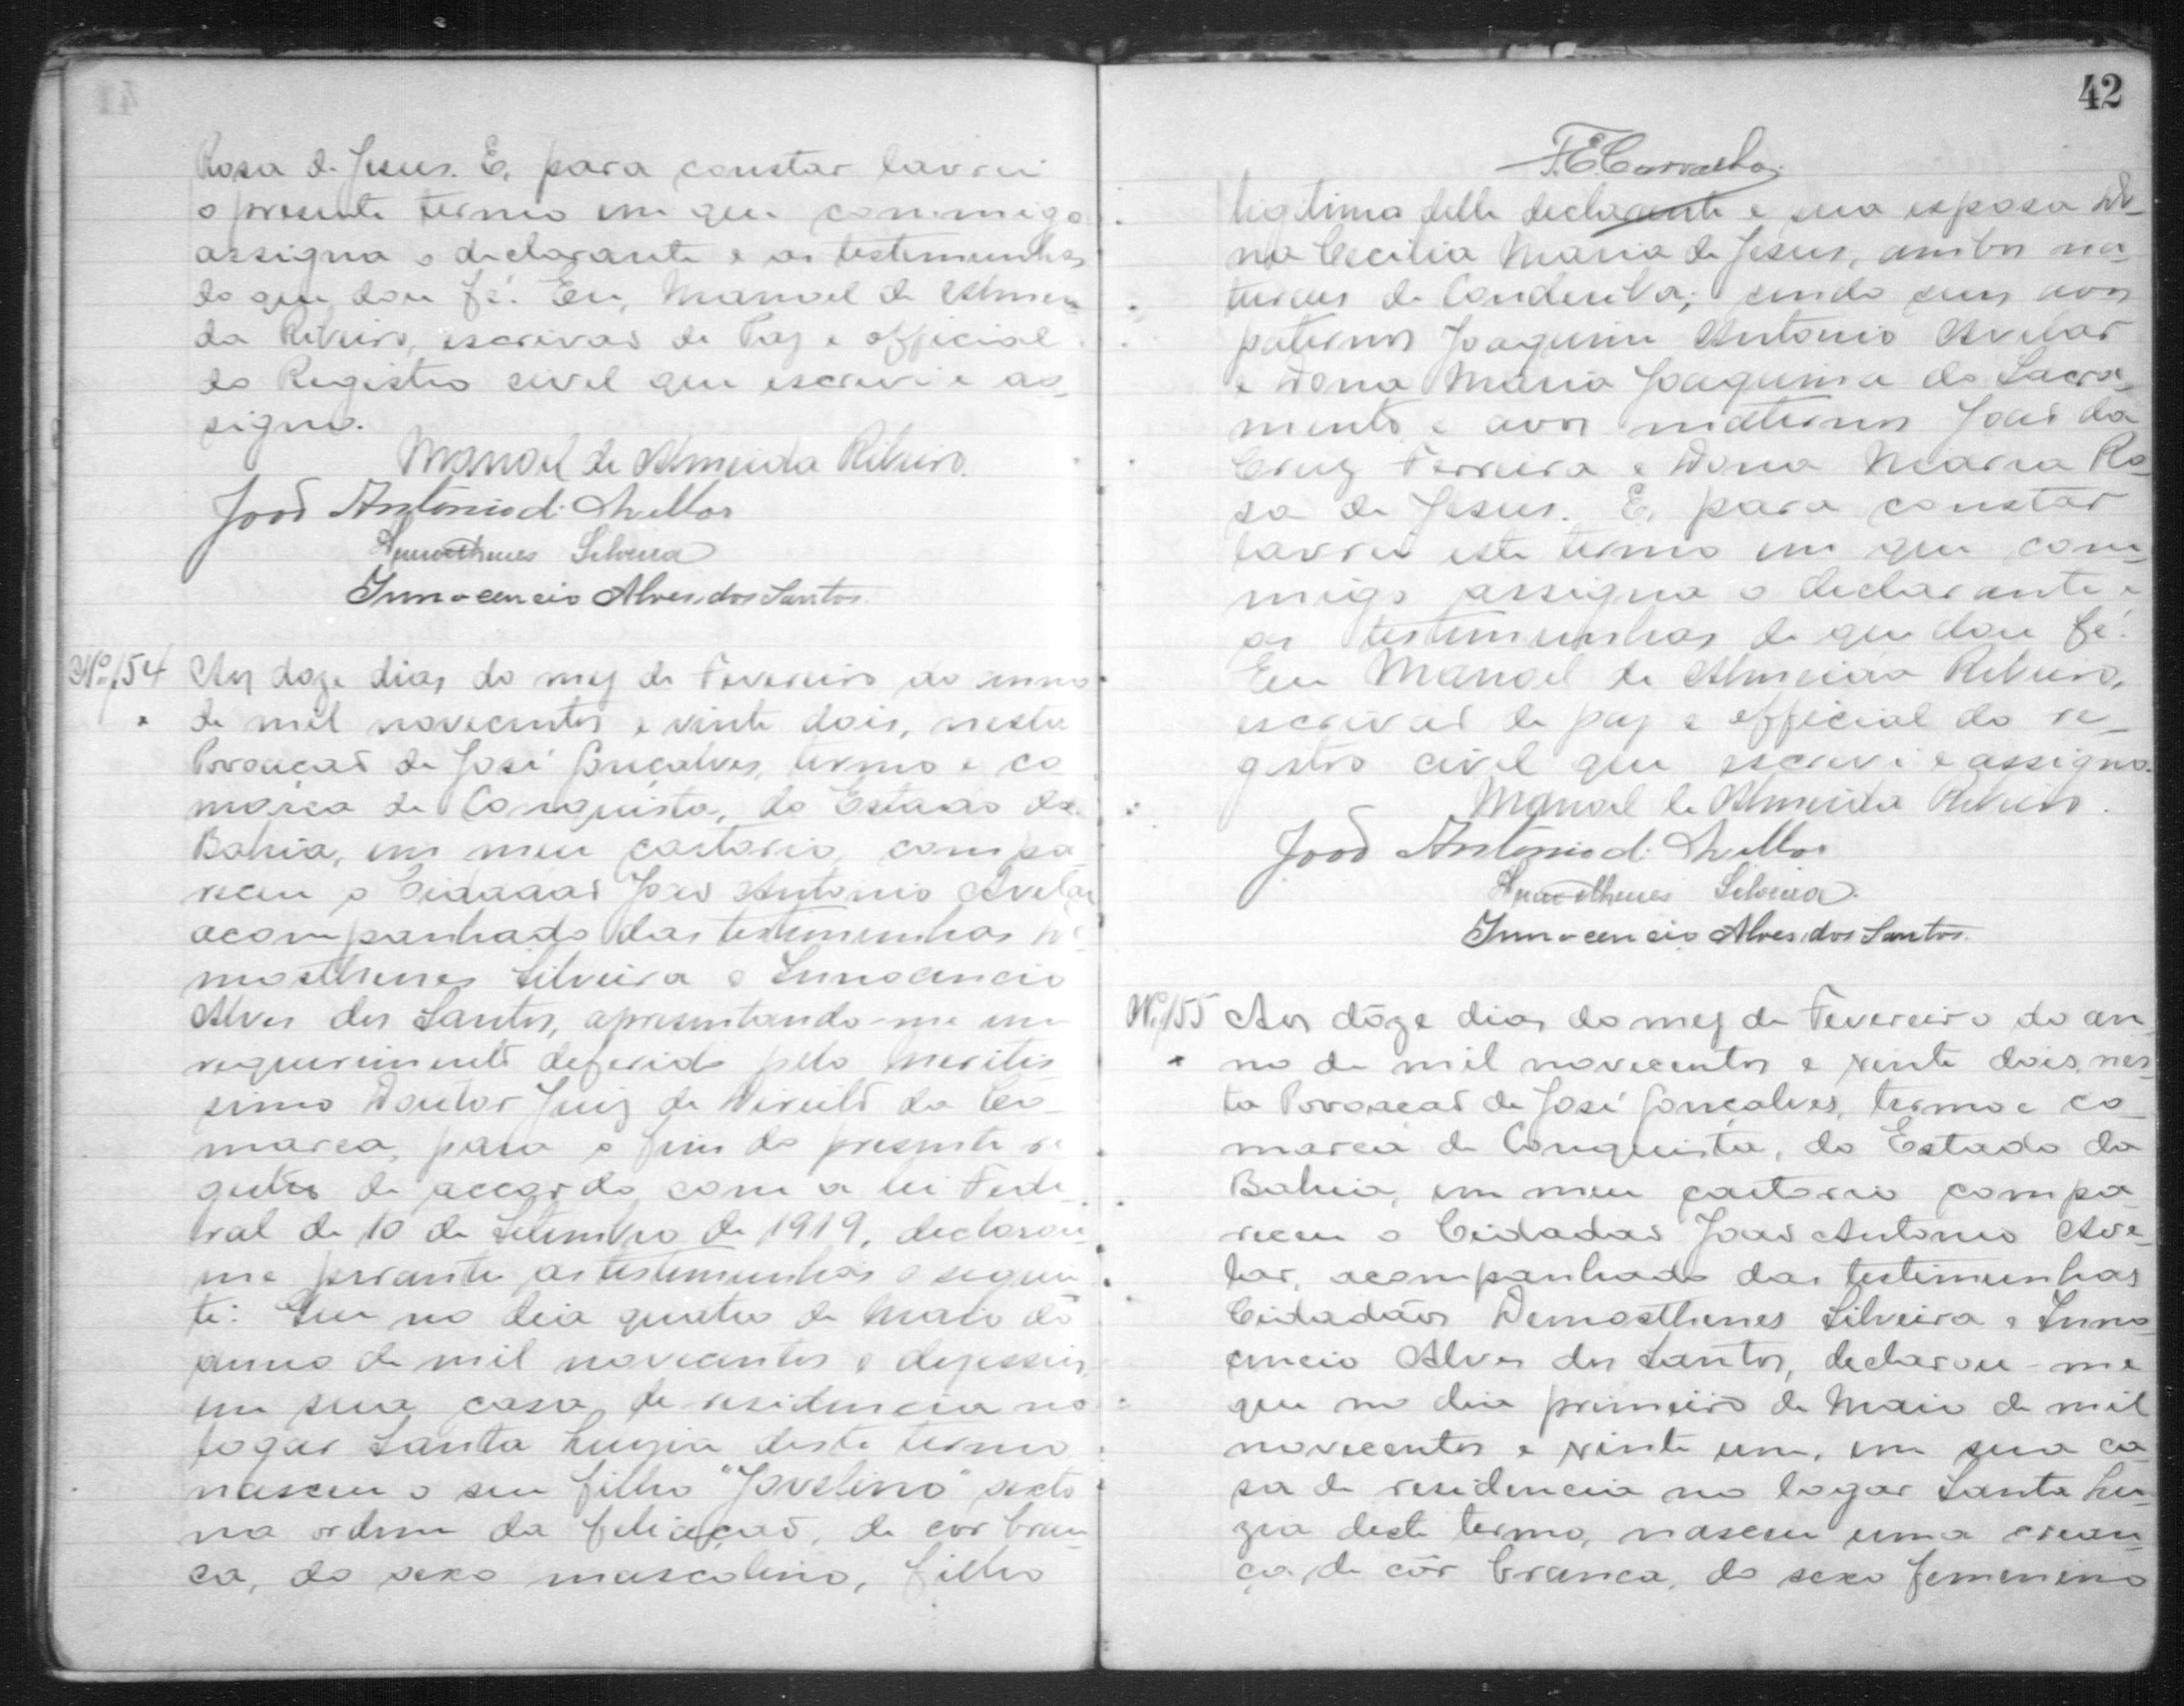 Rosa de Jesus. E, para constar lavrei
o presente termo em que commigo
assigna o declarante e as testemunhas
do que dou fé. Eu, Manoel de Almei
da Ribeiro, escrivão de Paz e official
do Registro civel que escrevi e as-
signo.
Manoel de Almeida Ribeiro.
João Antonio d.
Demosthenes Silveira
Innocencio Alves dos Santos.
Nº 154 Aos doze dias do mez de Fevereiro do anno
de mil novecentos e vinte dois, nesta
Povoação de José Gonçalves, termo e co
marca de Conquista, do Estado da
Bahia, em meu cartorio, compa
receu o Cidadão João Antonio Avelar
acompanhado das testemunhas De
mosthenes Silveira e Innocencio
Alves dos Santos, apresentando-me um
requerimento deferido pelo Meritis
simo Doutor Juiz de Direito da Co-
marca, para o fim do presente re
gistro de accordo com a lei Fede-
ral de 10 de Setembro de 1919, declarou
me perante as testemunhas o seguin
te: Que no dia quatro de Maio do
anno de mil novecentos e dezesseis,
em sua casa de residencia no
logar Santa Luzia deste termo
nasceu o seu filho "Jovelino" sexto
na ordem da filiação, de cor bran-
ca, do sexo masculino, filho
42
F.E.Carvalho
legitimo delle declarante e sua esposa Do-
na Cecilia Maria de Jesus, ambos na
turaes de Condeuba; sendo seus avós
paternos Joaquim Antonio Avelar
e Dona Maria Joaquina do Sacra-
mento e avós maternos João da
Cruz Ferreira e Dona Maria Ro-
sa de Jesus. E, para constar
lavrei este termo em que com-
migo assigna o declarante e
as testemunhas do que dou fé.
Eu Manoel de Almeida Ribeiro,
escrivão de paz e official do re-
gistro civel que escrevi e assigno.
Manoel de Almeida Ribeiro.
João Antonio d.
Demosthenes Silveira.
Innocencio Alves dos Santos.
Nº 155 Aos dôze dias do mez de Fevereiro do an
no de mil novecentos e vinte dois, nes-
ta Povoação de José Gonçalves, termo e co-
marca de Conquista, do Estado da
Bahia, em meu cartorio compa
receu o Cidadão João Antonio Ave-
lar, acompanhado das testemunhas
Cidadãos Demosthenes Silveira e Inno-
cencio Alves dos Santos, declarou-me
que no dia primeiro de Maio de mil
novecentos e vinte um, em sua ca
sa de residencia no logar Santa Lu-
zia deste termo, nasceu uma crean-
ça, de côr branca, do sexo femenino